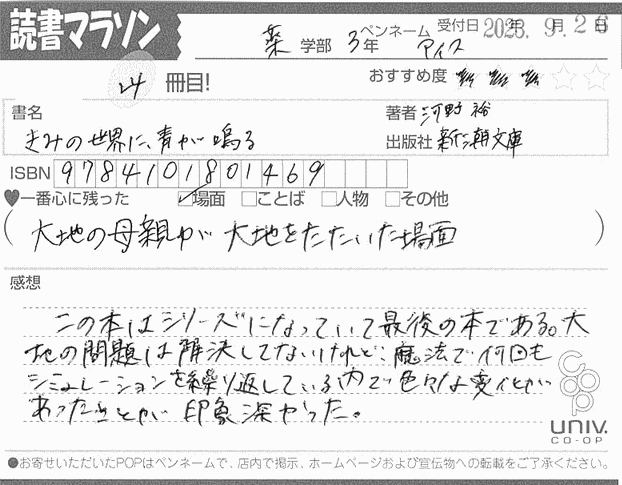 読書マラソン
薬 学部 3年 ペンネーム アイス 受付日 2023年 9月 26日
14 冊目! おすすめ度 ★★★☆☆
書名 著者 河野 裕
きみの世界に、青が鳴る 出版社 新潮文庫
ISBN 9784101801469
♥一番心に残った ☑場面 □ことば □人物 □その他
(大地の母親が大地をたたいた場面)
感想
この本はシリーズになっていて最後の本である。大
地の問題は解決してないけれど、魔法で何回も
シミュレーションを繰り返している内で色々な変化が
あったことが印象深かった。
coop
UNIV.
CO-OP
●お寄せいただいたPOPはペンネームで、店内で掲示、ホームページおよび宣伝物への転載をご了承ください。